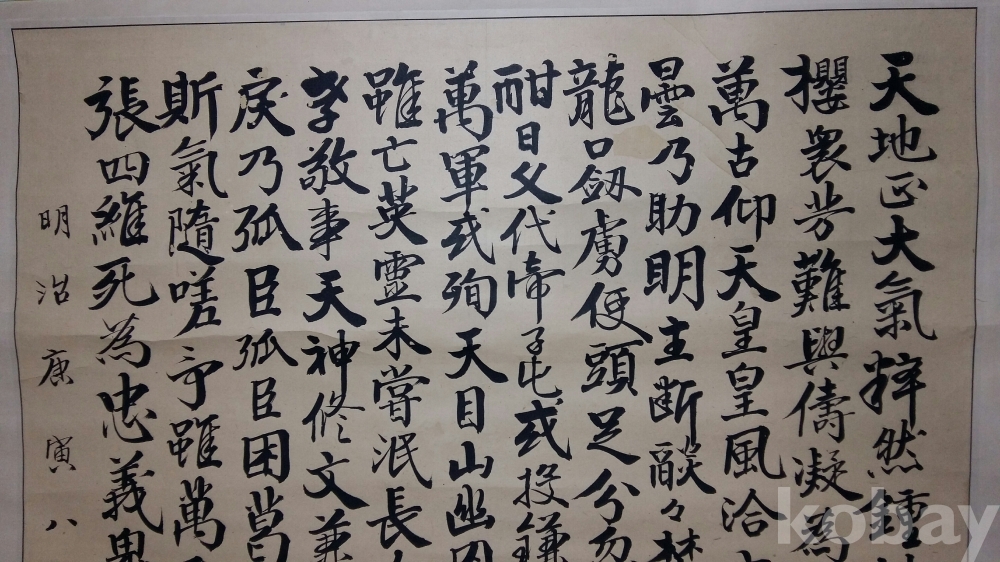 天地正大氣粹然鍾
櫻衆芳難與儔凝為
萬古仰天皇皇風洽
曇乃助明主斷燄々焚
龍口劔虜使頭足分忽
酣日父代帝子屯或投鎌
萬軍或殉天目山幽囚
雖亡英靈未嘗泯長
孝敬事天神修文兼
戾乃孤臣孤臣困葛
斯氣隨嗟予雖萬
張四維死為忠義鬼
明治庚寅八
kobay